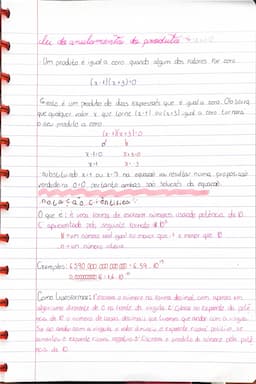 Lei do anulamento do produto
Um produto é igual a zero quando algum dos valores for zero
(x-1)(x+3)=0
é um produto de duas expressões que é igual a zero.
que qualquer valor x que torne (x-1) ou (x+3) igual a zero tornará
o seu produto a zero.
(x-1)(x+3)=0
x-1=0 x+3=0
x=1 x=-3
substituindo x=1 ou x=-3 na equação vai resultar numa proposição
verdadeira 0=0, portanto ambas são solução da equação.
notação científica:
O que é: é uma forma de escrever números usando potência de 10
É apresentado da seguinte forma:
um número real igual ou maior que 1 e menor que 10
n = um número inteiro
Exemplos: 6 590 000 000 000 000 = 6.59 .
Como transformar: 1º escreva o número na forma decimal, com apenas um
algarismo diferente de 0 na frente da vírgula 2º Coloca no expoente da potên-
cia de 10 o número de casas decimais que tivemos que andar com a vírgula.
Se ao andar com a vírgula o valor diminuiu o expoente ficará positivo, se
aumentou o expoente ficará negativo 3º Escreva o produto do número pela potên-
cia de 10.